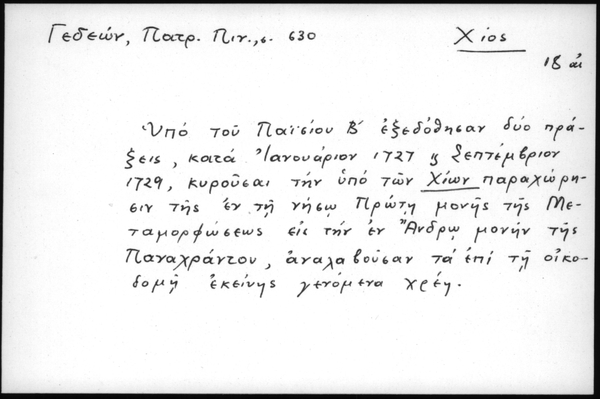 Γεδεών, Πατρ. Πιν., σ. 630
Χίος
18 αι
Ὑπό τοῦ Παϊσίου Β′ ἐξεδόθησαν δύο πρά-
ξεις, κατά Ἰανουάριον 1727 ϗ Σεπτέμβριον
1729, κυροῦσαι τήν ὑπό τῶν Χίων παραχώρη-
σιν τῆς ἐν τῇ νήσῳ Πρώτῃ μονῆς τῆς Με-
ταμορφώσεως εἰς τήν ἐν Ἄνδρῳ μονήν τῆς
Παναχράντου, ἀναλαβοῦσαν τά ἐπί τῇ οἰκο-
δομῇ ἐκείνης γενόμενα χρέη.